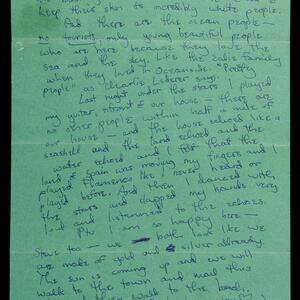 keep their skin so incredibly white people.
And there are the ocean people —
no tourists only young beautiful people
who are here because they love the
sea and the sky. Like the Zadie family
when they lived in Oceanside "Pretty
people" as Charlie Lederer says.
Last night under the stars I played
my guitar, in front of our house — there are
no other people within half a mile of
our house — and the house echoed like a
seashell and the land echoed and the
water echoed and I felt that the
land of Spain was moving my fingers and I
played flamenco like I never heard or
played before. And then I danced with
the stars and clapped my hands very
loud and listened to the echoes.
I am so happy here —
Steve too — we both look like we
are made of gold and silver already.
The sun is coming up and we will
walk to the town and mail this
then walk to the